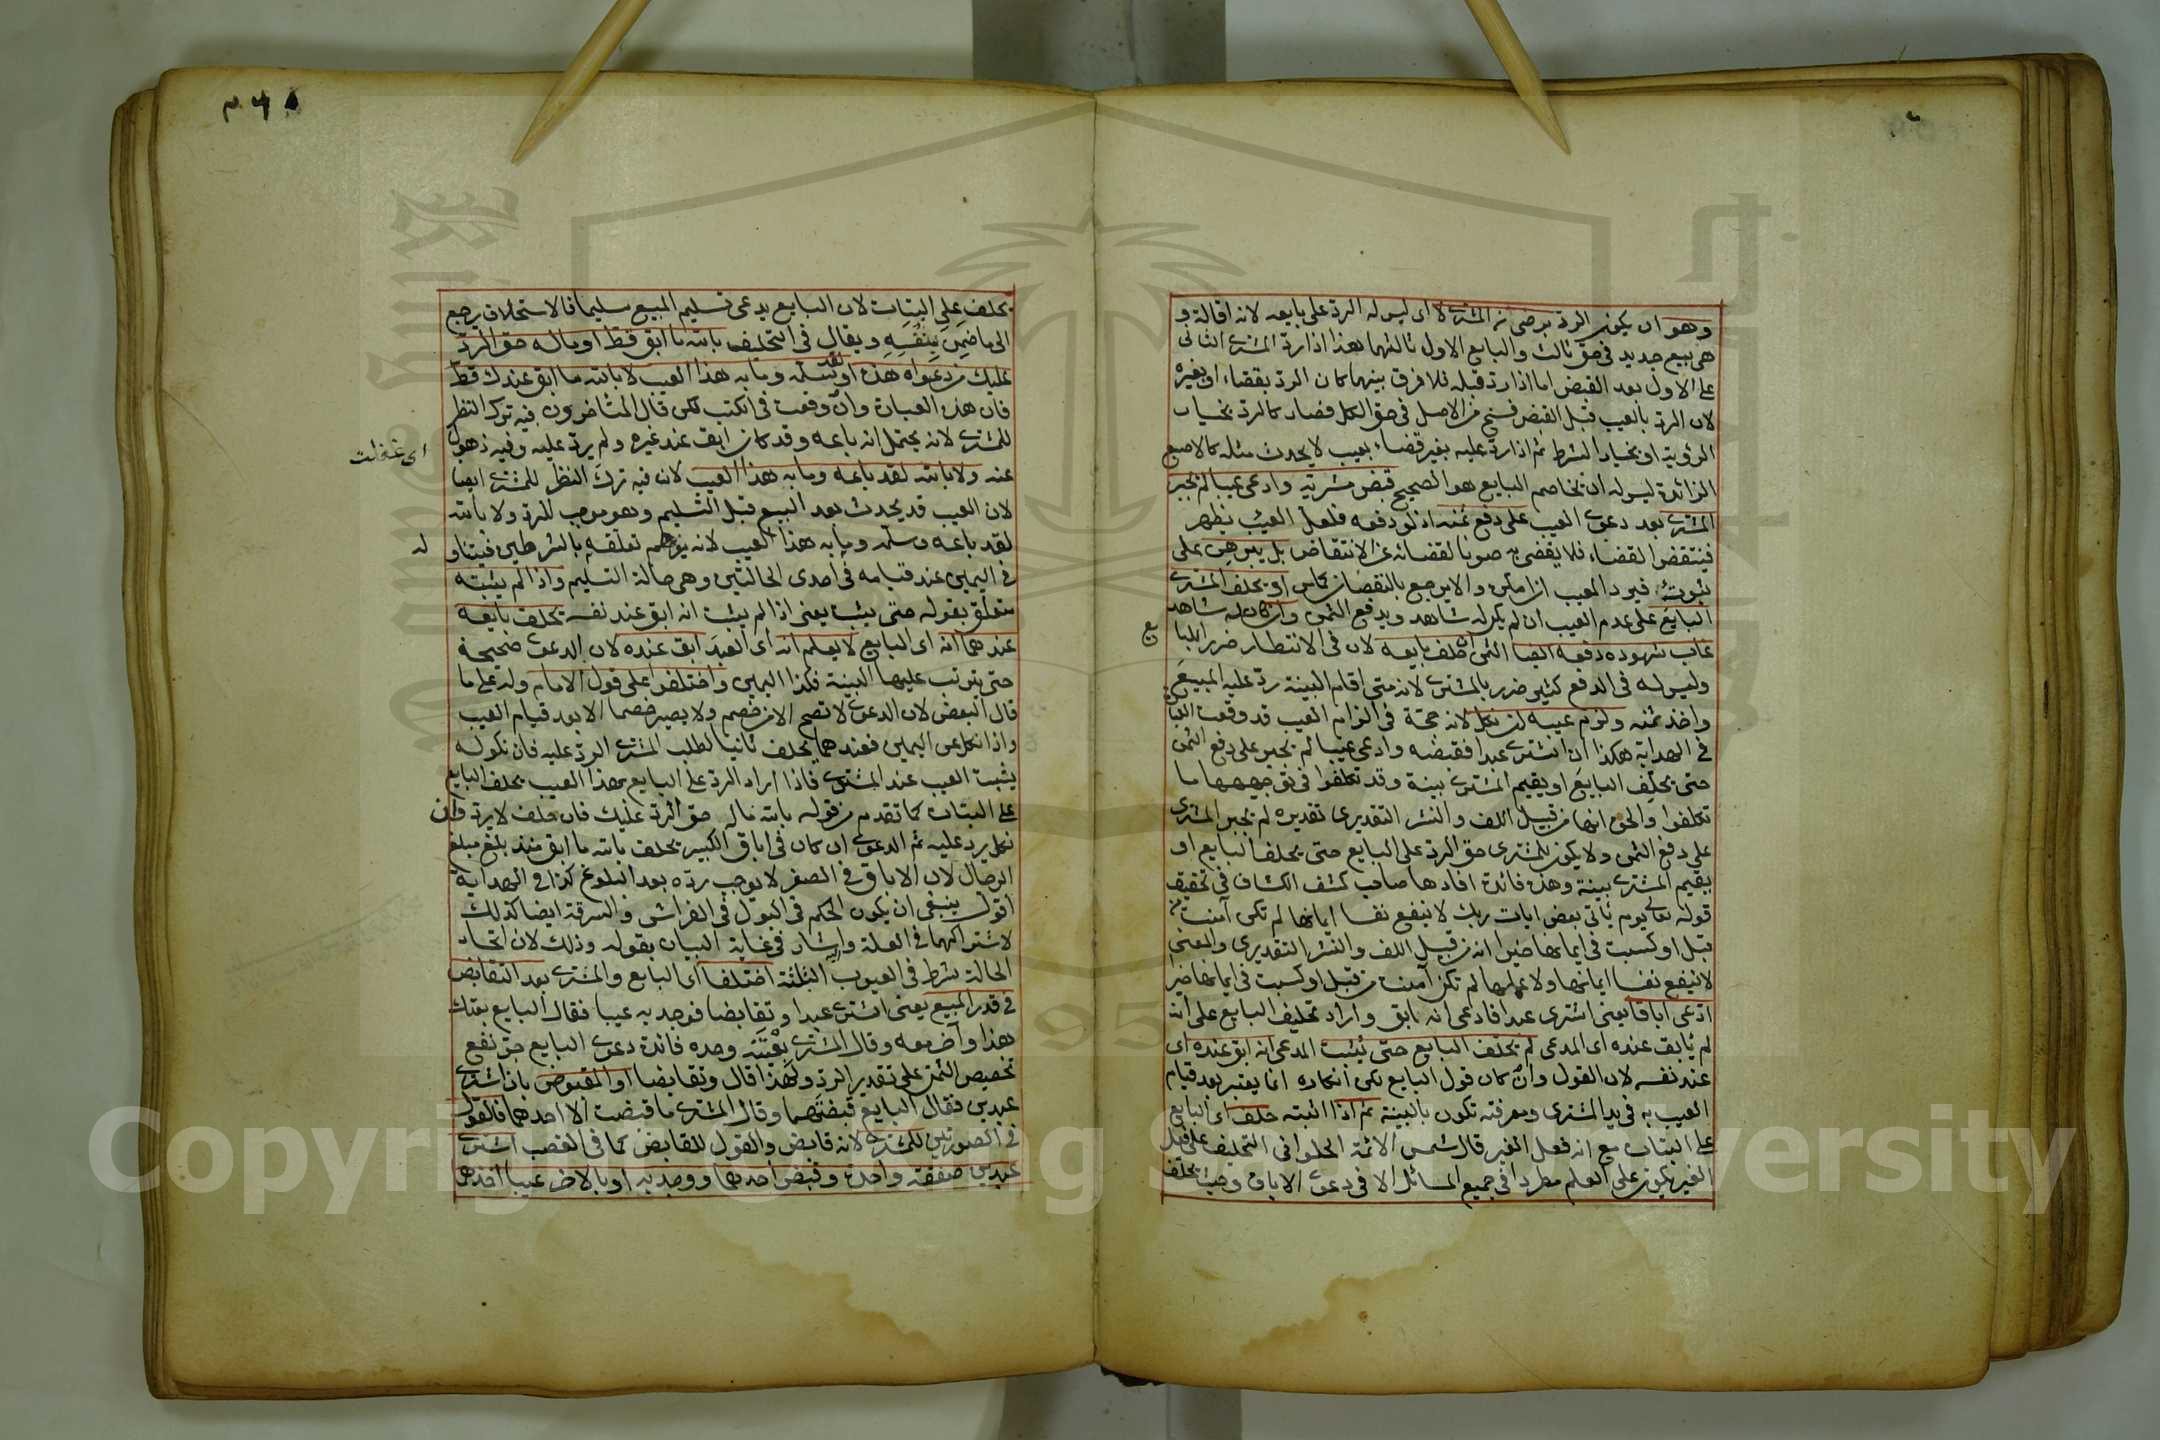 وهو ان يكون الرد برضى من المشترى لا اى ليس له الرد على بايعه لانه اقالة و
هى بيع جديد فى حق ثالث والبايع الاول ثالثهما هذا اذا رد المشترى الثانى
على الاول بعد القبض اما اذا رد قبله فلا فرق بينهما كان الرد بقضاء او بغيره
لان الرد بالعيب قبل القبض فسخ من الاصل فى حق الكل فصار كالرد بخيار
الرؤية او بخيار الشرط ثم اذا رد عليه بغير قضاء بعيب لا يحدث مثله كالاصبع
الزائدة ليس له ان يخاصم البايع هو الصحيح قبض مشريه وادعى عيبا لم يجبر
المشترى بعد دعوى العيب على دفع ثمنه اذ لو دفعه فلعل العيب يظهر
فينتقض القضاء فلا يقضى به صونا لقضائه عن الانتقاض بل يبرهن على
ثبوته فيرد المعيب ان امكن والا يرجع بالنقصان كما مر او يحلف المشترى
البايع على عدم العيب ان لم يكن له شاهد ويدفع الثمن وان كان له شاهد
غاب شهوده دفعه ايضا الثمن ان حلف بايعه لان فى الانتظار ضررا بايعا
وليس له فى الدفع كثير ضرر بالمشترى لانه متى اقام البينة رد عليه المبيع
واخذ ثمنه ولزم عيبه ان نكل لانه حجة فى الزام العيب قد وقعت العبارة
فى الهداية هكذا ان اشترى عبدا فقبضه وادعى عيبا لم يجبر على دفع الثمن
حتى يحلف البايع او يقيم المشترى بينة وقد تكلفوا فى توجيهها ما
تكلفوا والحق انها من قبيل اللف والنشر التقديرى تقديره لم يجبر المشترى
على دفع الثمن ولا يكون للمشترى حق الرد على البايع حتى يحلف البايع او
يقيم المشترى بينة وهذه فائدة افادها صاحب كشف الكشاف فى تحقيق
قوله تعالى يوم ياتى بعض ايات ربك لا ينفع نفسا ايمانها لم تكن آمنت من
قبل او كسبت فى ايمانها خيرا انه من قبيل اللف والنشر التقديرى والمعنى
لا ينفع نفسا ايمانها ولا عملها لم تكن آمنت من قبل او كسبت فى ايمانها خيرا
ادعى اباقا يعنى اشترى عبدا فادعى انه ابق واراد تحليف البايع على انه
لم يأبق عنده اى المدعى لم يحلف البايع حتى يثبت المدعى انه ابق عنده اى
عند نفسه لان القول وان كان قول البايع لكن انكاره انما يعتبر بعد قيام
العيب به فى يد المشترى ومعرفته تكون بالبينة ثم اذا اثبته حلف اى البايع
على البتات مع انه فعل الغير قال شمس الائمة الحلوانى التحليف على فعل
الغير يكون على العلم مطردا فى جميع المسائل الا فى دعوى الاباق وحيث يحلف
ع
٣٦٥
يحلف على البتات لان البايع يدعى تسليم المبيع سليما فالاستحلاف يرجع
الى ما ضمن بنفسه ويقال فى التحليف بالله ما ابق قط او ماله حق الرد
عليك من دعواه هذه او لقد سلمه وما به هذا العيب لا بالله ما ابق عندك قط
فان هذه العبارة وان وقعت فى الكتب لكن قال المتأخرون فيه ترك النظر
للمشترى لانه يحتمل انه باعه وقد كان ابق عند غيره ولم يرد عليه وفيه ذهول
عنه ولا بالله لقد باعه وما به هذا العيب لان فيه ترك النظر للمشترى ايضا
لان العيب قد يحدث بعد البيع قبل التسليم وهو موجب للرد ولا بالله
لقد باعه وسلمه وما به هذا العيب لانه يوهم تعلقه بالشرطين فيتناو
فى اليمين عند قيامه فى احدى الحالتين وهى حالة التسليم واذا لم يثبته
متعلق بقوله حتى يثبت يعنى اذا لم يثبت انه ابق عند نفسه يحلف بايعه
عندهما انه اى البايع لا يعلم انه اى العبد ابق عنده لان الدعوى صحيحة
حتى يترتب عليها البينة فكذا اليمين واختلفوا على قول الامام وله على ما
قال البعض لان الدعوى لا تصح الا من خصم ولا يصير خصما الا بعد قيام العيب
واذا نكل عن اليمين فعندهما يحلف ثانيا لطلب المشترى الرد عليه فان نكوله
يثبت العيب عند المشترى فاذا اراد الرد على البايع بهذا العيب يحلف البايع
على البتات كما تقدم من قوله بالله ماله حق الرد عليك فان حلف لا يرد وان
نكل يرد عليه ثم الدعوى ان كان فى اباق الكبير يحلف بالله ما ابق منذ بلغ مبلغ
الرجال لان الاباق فى الصغر لا يوجب رده بعد البلوغ كذا فى الهداية
اقول ينبغى ان يكون الحكم فى البول فى الفراش والسرقة ايضا كذلك
لاشتراكهما فى العلة واشار اليه فى غاية البيان بقوله وذلك لان اتحاد
الحالة شرط فى العيوب الثلثة اختلفا اى البايع والمشترى بعد التقابض
فى قدر المبيع يعنى اشترى عبدا وتقابضا فوجد به عيبا فقال البايع بعتك
هذا وآخر معه وقال المشترى بعتنيه وحده فائدة دعوى البايع حق نفع
تخصيص الثمن على تقدير الرد ولهذا قال وتقابضا او المقبوض بان اشترى
عبدين فقال البايع قبضتهما وقال المشترى ما قبضت الا احدهما فالقول
فى الصورتين للمشترى لانه قابض والقول للقابض كما فى الغصب اشترى
عبدين صفقة واحدة وقبض احدهما ووجد به او بالاخر عيبا اخذهما
اى غفلت
له
Copyright © King Saud University